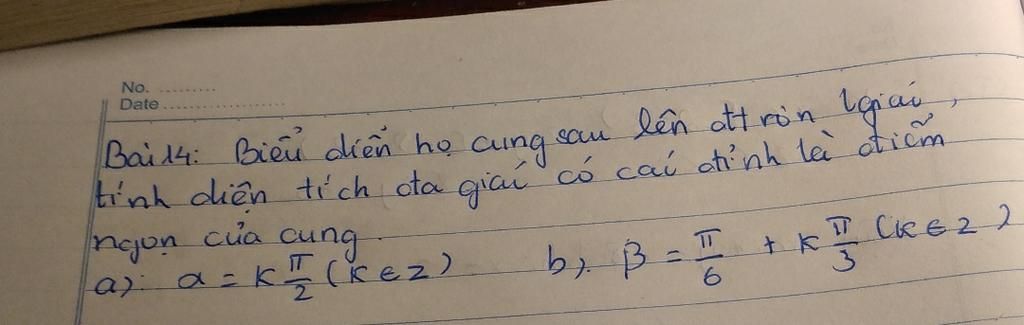 No. .........
Date ...................
Bài 14: Biểu diễn họ cung sau lên đtròn lgiai,
tính diện tích đa giái có cái đỉnh là điểm
ngọn của cung.
a): α = k π/2 (k ∈ z) b). β = π/6 + k π/3 (k ∈ z)